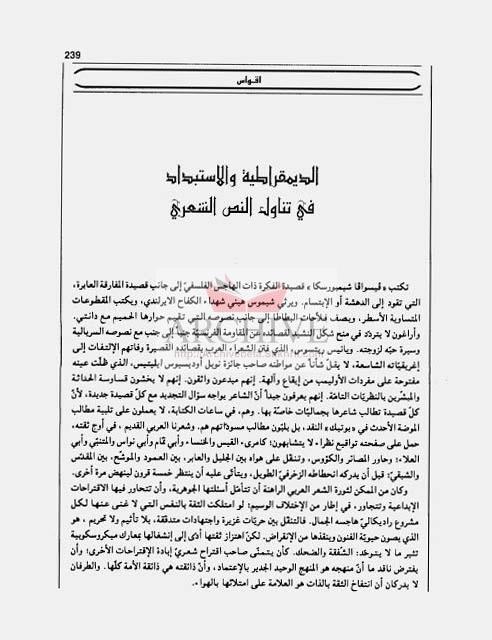 239
اقـواس
الديمقراطية والاستبداد
في تناول النص الشعري
تكتب « ڤيسواڤا شيمبورسكا » قصيدة الفكرة ذات الهاجس الفلسفيّ إلى جانب قصيدة المفارقة العابرة،
التي تقود إلى الدهشة أو الإبتسام. ويرثي شيموس هيني شهداء الكفاح الايرلندي، ويكتب المقطوعات
المتساوية الأسطر، ويصف فلاحات البطاطا إلى جانب نصوصه التي تقيم حوارها الحميم مع دانتي.
وأراغون لا يتردّد في منح شكل النشيد لقصائده عن المقاومة الفرنسيّة جنباً إلى جنب مع نصوصه السريالية
وسيرة حبّه لزوجته. ويانيس ريتسوس، الذي فتن الشعراء العرب بقصائده القصيرة وفاتهم الإلتفات إلى
إغريقيّاته الشاسعة، لا يقلّ شأناً عن مواطنه صاحب جائزة نوبل أوديسيوس إيليتيس، الذي ظلّت عينه
مفتوحة على مفردات الأوليمب من إيقاع وآلهة. إنهم مبدعون واثقون. إنهم لا يخشون قساوسة الحداثة
والمبشّرين بالنظريّات التامّة. إنهم يعرفون جيداً أنّ الشاعر يواجه سؤال التجديد مع كلّ قصيدة جديدة، لأنّ
كلّ قصيدة تطالب شاعرها بجماليّات خاصّة بها. وهم، في ساعات الكتابة، لا يعملون على تلبية مطالب
الموضة الأحدث في «بوتيك» النقد، بل يلبّون مطالب مسودّاتهم هم. وشعرنا العربي القديم ، في أوج ثقته،
حمل على صفحته تواقيع نظراء لا يتشابهون: كامرىء القيس والخنساء وأبي تمّام وأبي نواس والمتنبّي وأبي
العلاء؛ وحاور المصائر والكؤوس، وتنقّل على هواه بين الجليل والعابر، بين العمود والموشّح، بين المقدّس
والشبقيّ؛ قبل أن يدركه انحطاطه الزخرفيّ الطويل، ويتأتّى عليه أن ينتظر خمسة قرون لينهض مرة أخرى.
وكان من الممكن لثورة الشعر العربي الراهنة أن تتأمّل أسئلتها الجوهرية، وأن تتحاور فيها الاقتراحات
الإبداعية وتتجاور، في إطار من الإختلاف الوسيم؛ لو امتلكت الثقة بالنفس التي لا غنى عنها لكل
مشروع راديكاليّ هاجسه الجمال. فالتنقّل بين حريّات غزيرة واجتهادات متدفقة، بلا تأثيم ولا تحريم ، هو
الذي يصون حيويّة الفنون وينقذها من الإنقراض. لكنّ اهتزاز ثقتها أدّى إلى إنشغالها بمعارك ميكروسكوبية
تثير ما لا يتوحّد: الشّفقة والضحك. كأن يتمنّى صاحب اقتراح شعريّ إبادة الإقتراحات الأخرى؛ وأن
يفترض ناقد ما أنّ منهجه هو المنهج الوحيد الجدير بالإعتماد، وأنّ ذائقته هي ذائقة الأمة كلّها. والطرفان
لا يدركان أن انتفاخ الثقة بالذات هو العلامة على امتلائها بالهواء.
ARCHIVE